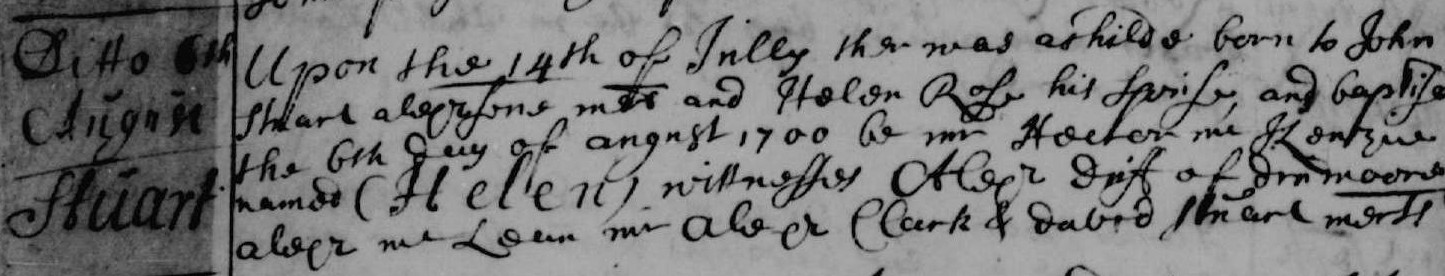 Ditto 6th
August
Stuart
Upon the 14th of Jully ther was a childe born to John
Stuart alexrsone mert and Helen Rose his spouse, and baptised
the 6th day of august 1700 be mr Hector mc Kenzie
named (Helen) wittnesses Alexr duff of drumoore
alexr mc Lean mr Alexr Clark & david Stuart merts